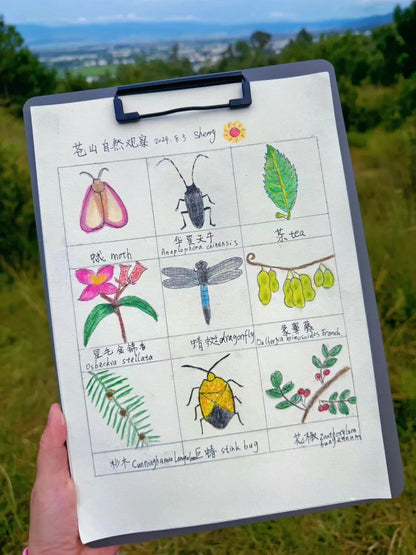 苍山自然观察 2024.5.3 Sheng
蛾 moth
华星天牛
Anoplophora chinensis
茶 tea
星毛金锦香
Osbeckia stellata
蜻蜓 dragonfly
象鼻藤
Dalbergia mimosoides Franch
杉木 Cunninghamia lanceolata
stink bug
花椒 Zanthoxylum
bungeanum